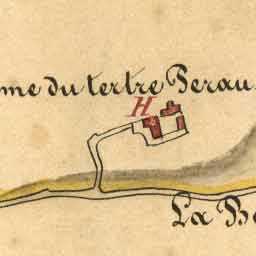 me du tertre Perau
H
La Bo